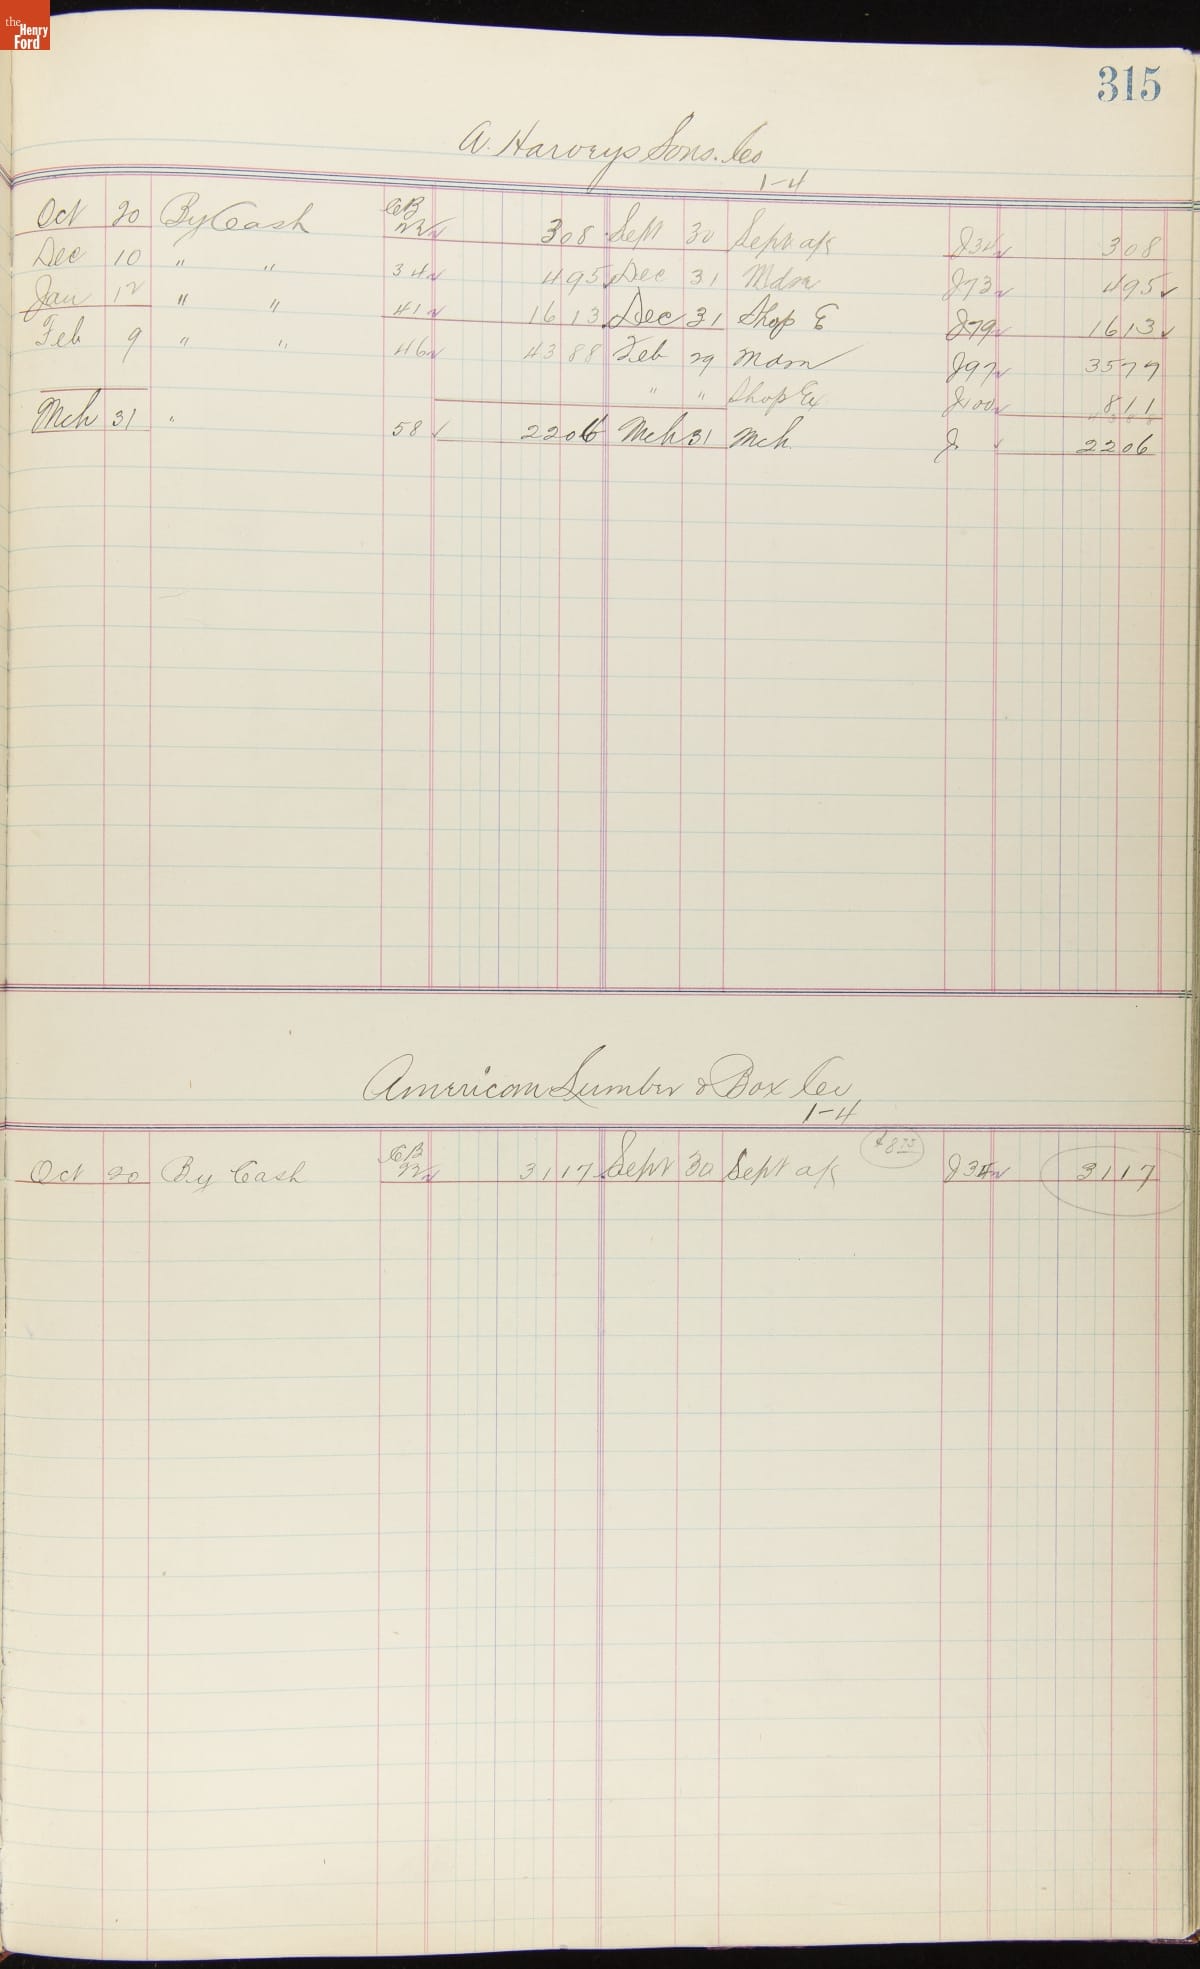 the Henry Ford
315
A. Harveys Sons. Co
1-4
Oct 20 By Cash CB 22 308 Sept 30 Sept a/c J34 308
Dec 10 " " 34 495 Dec 31 Mdse J73 495
Jan 12 " " 41 16 13 Dec 31 Shop E J79 16 13
Feb 9 " " 46 43 88 Feb 29 Mdse J97 35 77
" " Shop Ex J100 8 11
43 88
Mch 31 " 58 22 06 Mch 31 Mch. J 22 06
American Lumber & Box Co
1-4
Oct 20 By Cash CB 22 31 17 Sept 30 Sept a/c J34 31 17